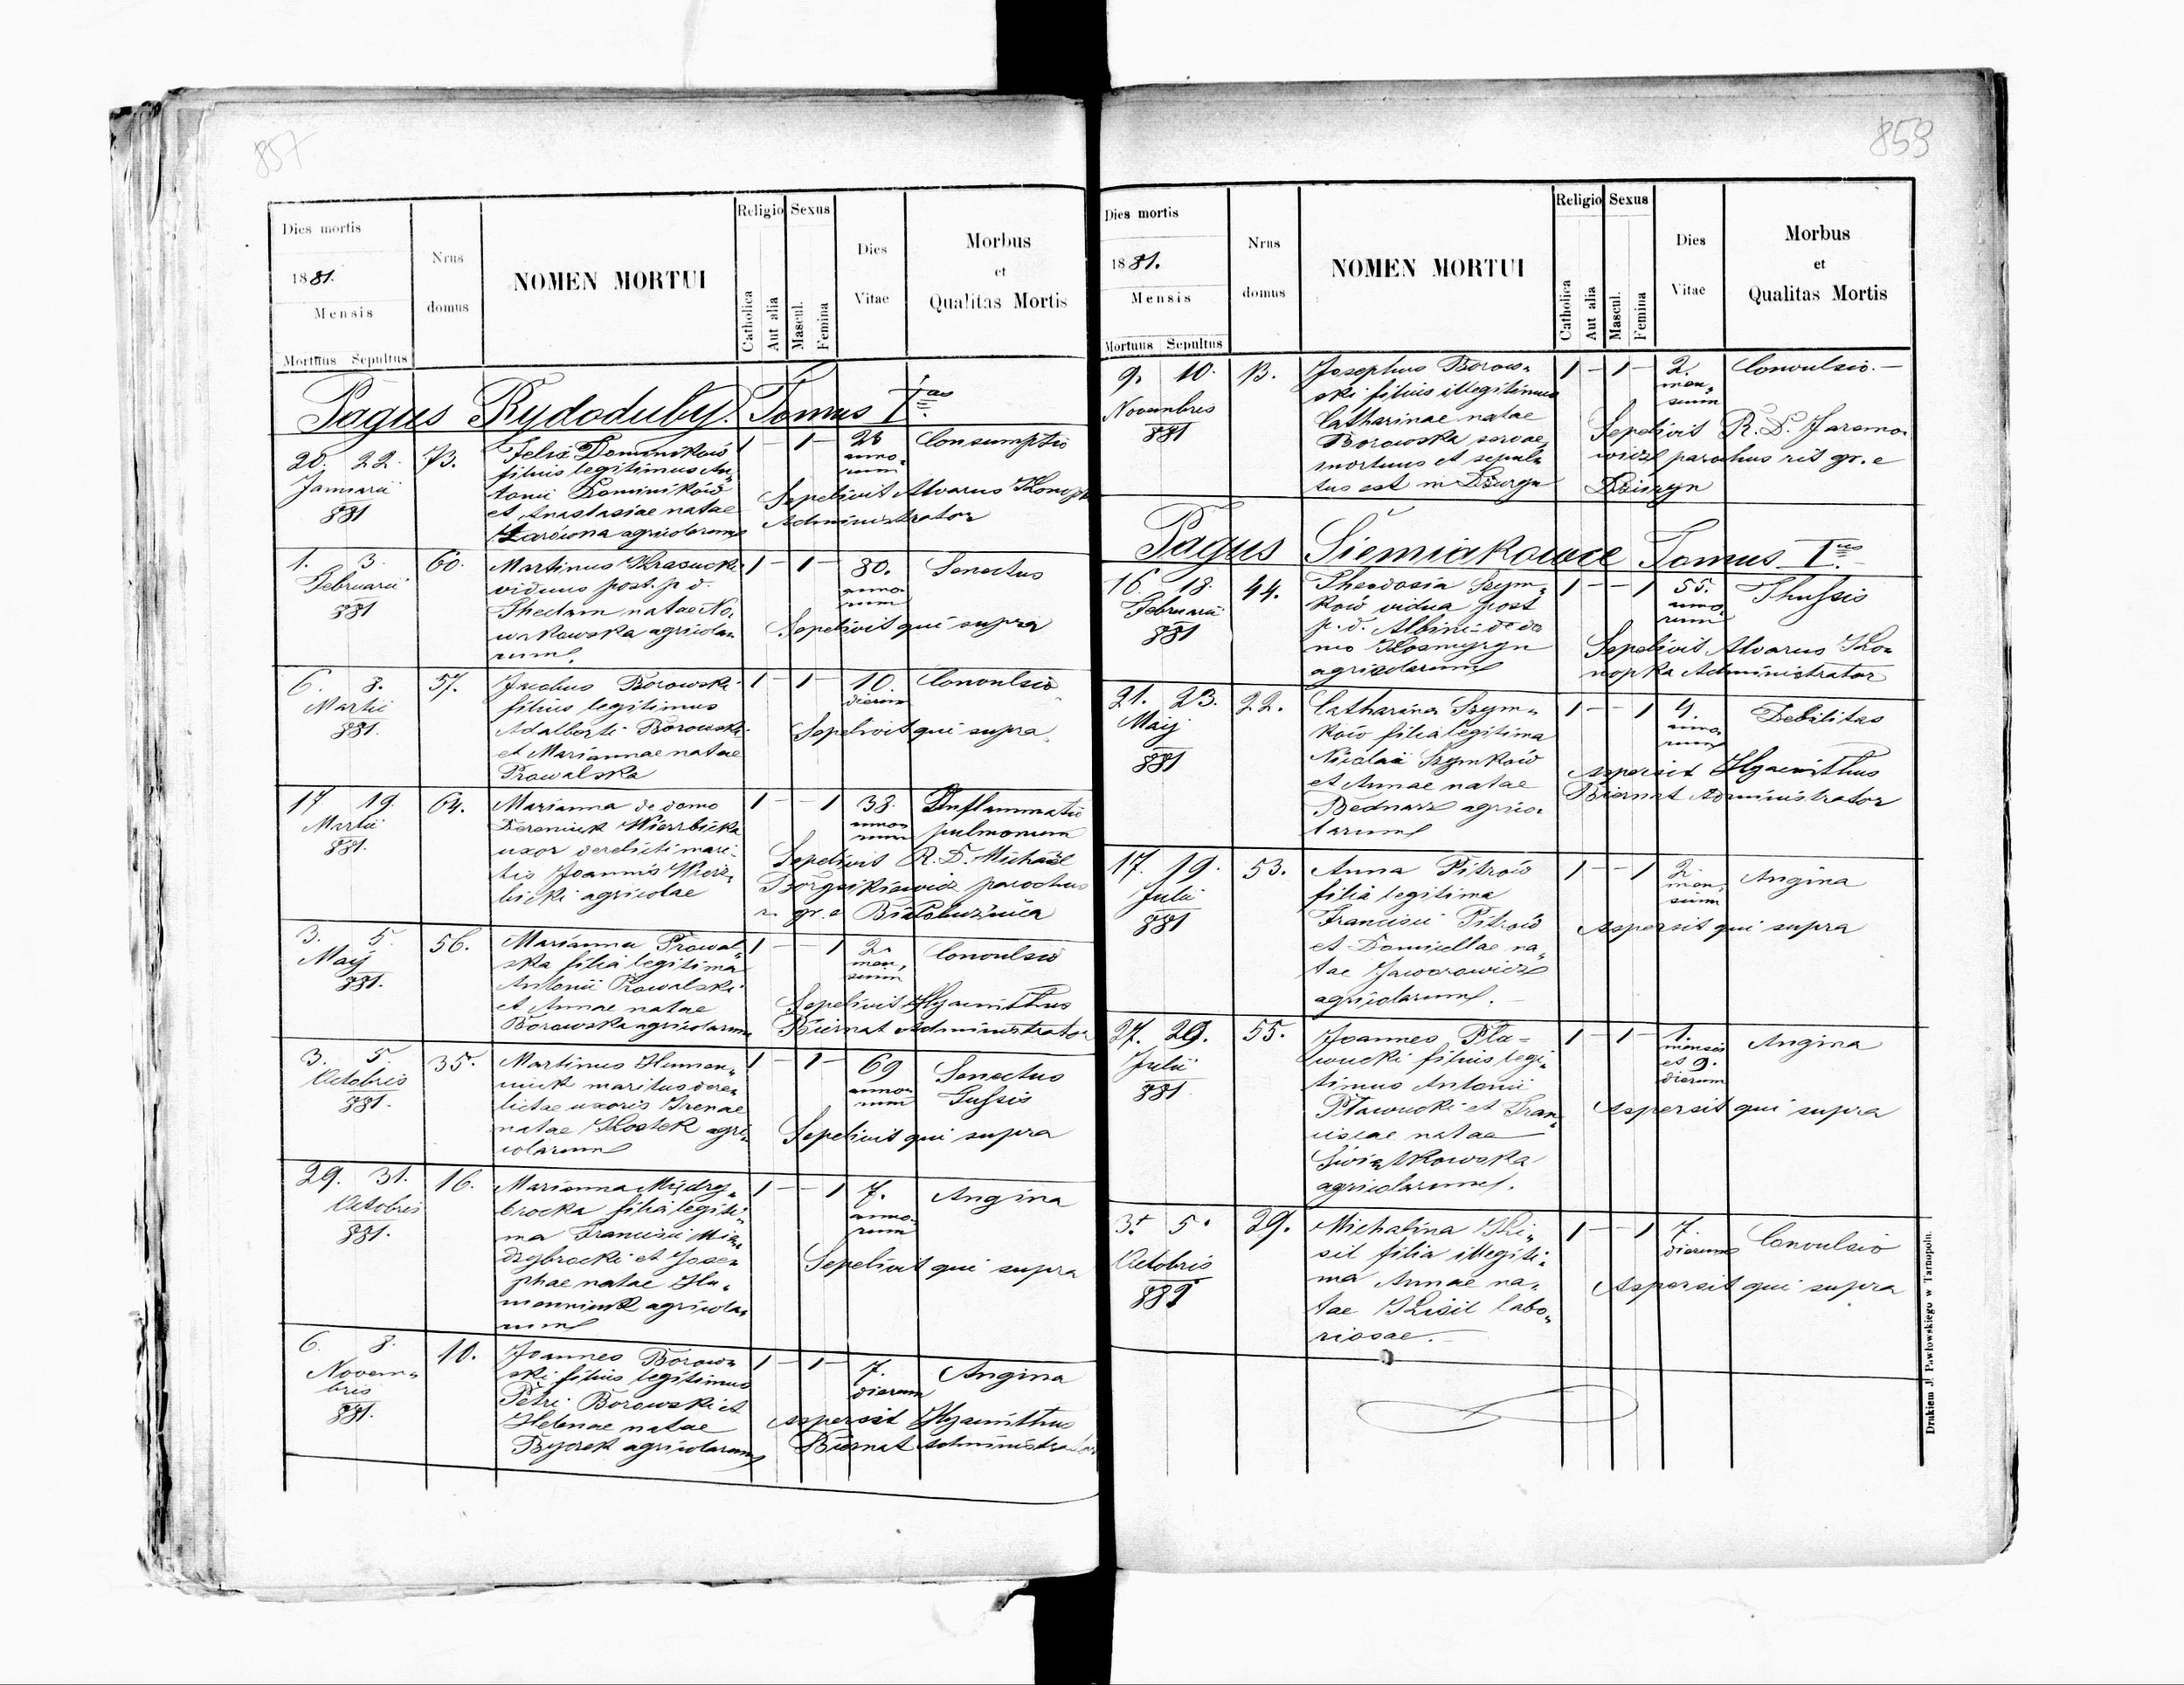 857
Dies mortis
1881.
Mensis
Mortuus Sepultus
Nrus
domus
NOMEN MORTUI
Religio
Catholica
Aut alia
Sexus
Mascul.
Femina
Dies
Vitae
Morbus
et
Qualitas Mortis
Pagus Rydoduby. Tomus I.us
20. 22. 73.
Januarii
881
Felix Dominików
filius legitimus An„
tonii Dominików
et Anastasiae natae
agricolarum
1 – 1 – 28
anno„
rum
Consumptio
Sepelivit Alvarus
Administrator
1. 3. 60.
Februarii
881
Martinus Krasucki
viduus post. p. d.
Theclam natae No„
wakowska agricola„
rum.
1 – 1 – 80.
anno„
rum
Senectus
Sepelivit qui supra
6. 8. 57.
Martii
881.
Jacobus Borowski
filius legitimus
Adalberti Borowski
et Mariannae natae
Prowalska
1 – 1 – 10.
dierum
Convulsio
Sepelivit qui supra.
17 19. 64.
Martii
881.
Marianna de domo
Dereniuk Wierzbicka
uxor derelicti mari„
tis Joannis Wierz„
bicki agricolae
1 – – 1 38.
anno„
rum
Inflammatio
pulmonum
Sepelivit R. D. Michael
parochus
r. gr. c Białobużnica
3. 5. 56.
Maij
881.
Marianna Prowal„
ska filia legitima
Antonii Prowalski
et Annae natae
Borowska agricolarum
1 – – 1 2.
men„
sium
Convulsio
Sepelivit Hyacinthus
Biernat Administrator
3. 5. 35.
Octobris
881.
Martinus Humen„
niuk maritus dere„
lictae uxoris Irenae
natae Kostek agri„
colarum
1 – 1 – 69
anno„
rum
Senectus
Tussis
Sepelivit qui supra
29. 31. 16.
Octobris
881.
Marianna Między„
brocka filia legiti„
ma Francisci Mię„
dzybrocki et Jose„
phae natae Hu„
menniuk agricola„
rum
1 – – 1 7.
anno„
rum
Angina
Sepelivit qui supra
6. 8. 10.
Novem„
bris
881.
Joannes Borow„
ski filius legitimus
Petri Borowski et
Helenae natae
agricolarum
1 – 1 – 7.
dierum
Angina
Aspersit Hyacinthus
Biernat Administrator
859
Dies mortis
1881.
Mensis
Mortuus Sepultus
Nrus
domus
NOMEN MORTUI
Religio
Catholica
Aut alia
Sexus
Mascul.
Femina
Dies
Vitae
Morbus
et
Qualitas Mortis
9. 10. 13.
Novembris
881
Josephus Borow„
ski filius illegitimus
Catharinae natae
Borowska servae,
mortuus et sepul„
tus est in Dżuryn
1 – 1 – 2.
men„
sium
Convulsio. –
Sepelivit R. D. Jaremo„
wicz parochus rit gr. c
Dżuryn
Pagus Siemiakowce Tomus I.us
16. 18. 44.
Februarii
881
Theodosia Szym„
ków vidua post
p. d. Albini de do
mo
agricolarum
1 – – 1 55.
anno„
rum
Thussis
Sepelivit Alvarus Ko„
nopka Administrator
21. 23. 22.
Maij
881
Catharina Szym„
ków filia legitima
Nicolai Szymków
et Annae natae
Bednarz agrico„
larum
1 – – 1 4.
anno„
rum
Debilitas
Aspersit Hyacinthus
Biernat Administrator
17. 19. 53.
Julii
881
Anna Pitrów
filia legitima
Francisci Pitrów
et Domicellae na„
tae Jaworowicz
agricolarum. –
1 – – 1 2.
men„
sium
Angina
Aspersit qui supra
27. 29. 55.
Julii
881
Joannes Pła=
wucki filius legi„
timus Antonii
Pławucki et Fran„
ciscae natae
Świątkowska
agricolarum.
1 – 1 – 1.
mensis
et 9.
dierum
Angina
Aspersit qui supra
3. 5. 29.
Octobris
881
Michalina Ki„
sil filia illegiti„
ma Annae na„
tae Kisil labo„
riosae. –
1 – – 1 7.
dierum
Convulsio
Aspersit qui supra
Drukiem J. Pawłowskiego w Tarnopolu.